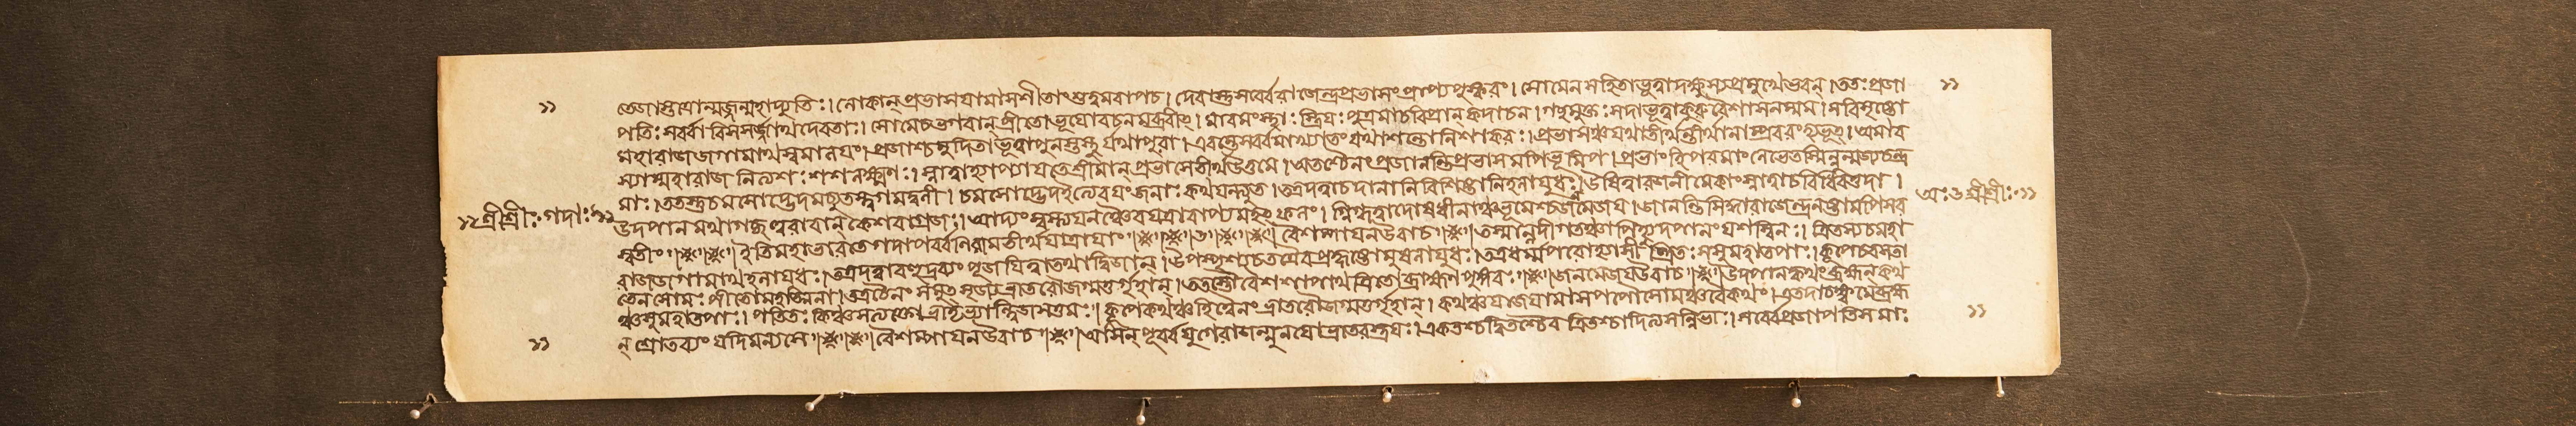 তেজাস্তস্যোন্মজ্জন্মহাদ্যুতিঃ। লোকান্ প্রভাসযামাসশীতাংশুত্বমবাপচ। দেবাস্তুসর্ব্বেরাজেন্দ্রপ্রভাসংপ্রাপ্যপুষ্করং। সোমেনসহিতাভূত্বাদক্ষস্যপ্রমুখেভবন্। ততঃপ্রজা
পতিঃসর্ব্বাবিসসর্জ্জাথদেবতাঃ। সোমঞ্চভগবান্ প্রীতোভূযোবচনমব্রবীৎ। মাবমংস্থাঃস্ত্রিযঃপুত্রমাচবিপ্রান্ কদাচন। গচ্ছযুক্তঃসদাভূত্বাকুরুবৈশাসনম্মম। সবিসৃষ্টো
মহারাজজগামাথস্বমালযং। প্রজাশ্চমুদিতাভূত্বাপুনস্তস্থুর্যথাপুরা। এবন্তেসর্ব্বমাখ্যাতংযথাশপ্তোনিশাকরঃ। প্রভাসঞ্চযথাতীর্থন্তীর্থানাম্প্রবরংহ্যভূৎ। অমাব
স্যাম্মহারাজনিত্যশঃশশলক্ষ্মণঃ। স্নাত্বাহ্যাপ্যাযতেশ্রীমান্ প্রভাসেতীর্থউত্তমে। অতশ্চৈনংপ্রজানন্তিপ্রভাসমপিভূমিপ। প্রভাংহিপরমাংলেভেতস্মিন্নুন্মজ্যচন্দ্র
মাঃ। ততস্তুচমসোদ্ভেদমচ্যুতস্ত্বগমদ্বলী। চমসোদ্ভেদইত্যেবযংজনাঃকথযন্ত্যুত। তত্রদত্বাচদানানিবিশিষ্টানিহলাযুধঃ। উষিত্বারজনীমেকাংস্নাত্বাচবিধিবত্তদা।
উদপানমথাগচ্ছত্ত্বরাবান্ কেশবাগ্রজঃ। আদ্যংস্বস্ত্যযনঞ্চৈবযত্রাবাপ্যমহৎফলং। স্নিগ্ধত্বাদোষধীনাঞ্চভূমেশ্চজনমেজয। জানন্তিসিদ্ধারাজেন্দ্রনষ্টামপিসর
স্বতীং। ইতিমহাভারতেগদাপর্ব্বনিরামতীর্থযাত্রাযাং। ৩। বৈশম্পাযনউবাচ। তস্মান্নদীগতঞ্চাপিহ্যুদপানংযশস্বিনঃ। ত্রিতস্যচমহা
রাজজগামাথহলাযুধঃ। তত্রদত্বাবহুদ্রব্যংপূজযিত্বাতথাদ্বিজান্। উপস্পৃশ্যচতত্রৈবপ্রহৃষ্টোমুষলাযুধঃ। তত্রধর্ম্মপরোহ্যাসীৎত্রিতঃসসুমহাতপাঃ। কূপেচবসতা
তেনসোমঃপীতোমহাত্মনা। তত্রচৈনংসমুৎসৃজ্যভ্রাতরৌজগ্মতুর্গৃহান্। ততস্তৌবৈশশাপাথত্রিতোব্রাহ্মণপুঙ্গবঃ। জনমেজযউবাচ। উদপানঙ্কথংব্রহ্মন্ কথ
ঞ্চসুমহাতপাঃ। পতিতঃকিঞ্চসত্যক্তোভ্রাতৃভ্যান্দ্বিজসত্তমঃ। কূপেকথঞ্চহিত্বৈনংভ্রাতরৌজগ্মতুর্গৃহান্। কথঞ্চযাজযামাসপপৌসোমঞ্চবৈকথং। এতদাচক্ষ্বমেব্রহ্ম
ন্ শ্রোতব্যংযদিমন্যসে। বৈশম্পাযনউবাচ। আসন্ পূর্ব্বযুগেরাজন্মুনযোভ্রাতরস্ত্রযঃ। একতশ্চদ্বিতশ্চৈবত্রিতশ্চাদিত্যসন্নিভাঃ। সর্ব্বেপ্রজাপতিসমাঃ
শ্রীশ্রীঃগদাঃ
শ্রীশ্রীঃ